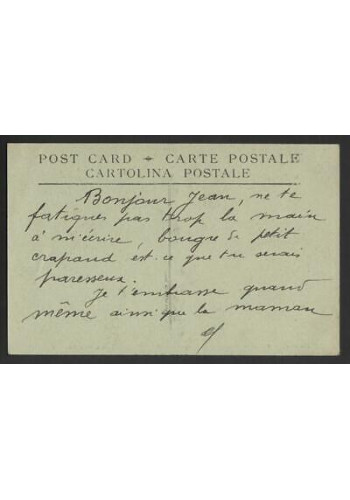 POST CARD - CARTE POSTALE
CARTOLINA POSTALE
Bonjour Jean, ne te
fatigues pas trop la main
à m'écrire, bougre de petit
crapaud est-ce que tu serais
paresseux.
Je t'embrasse quand
même ainsi que la maman